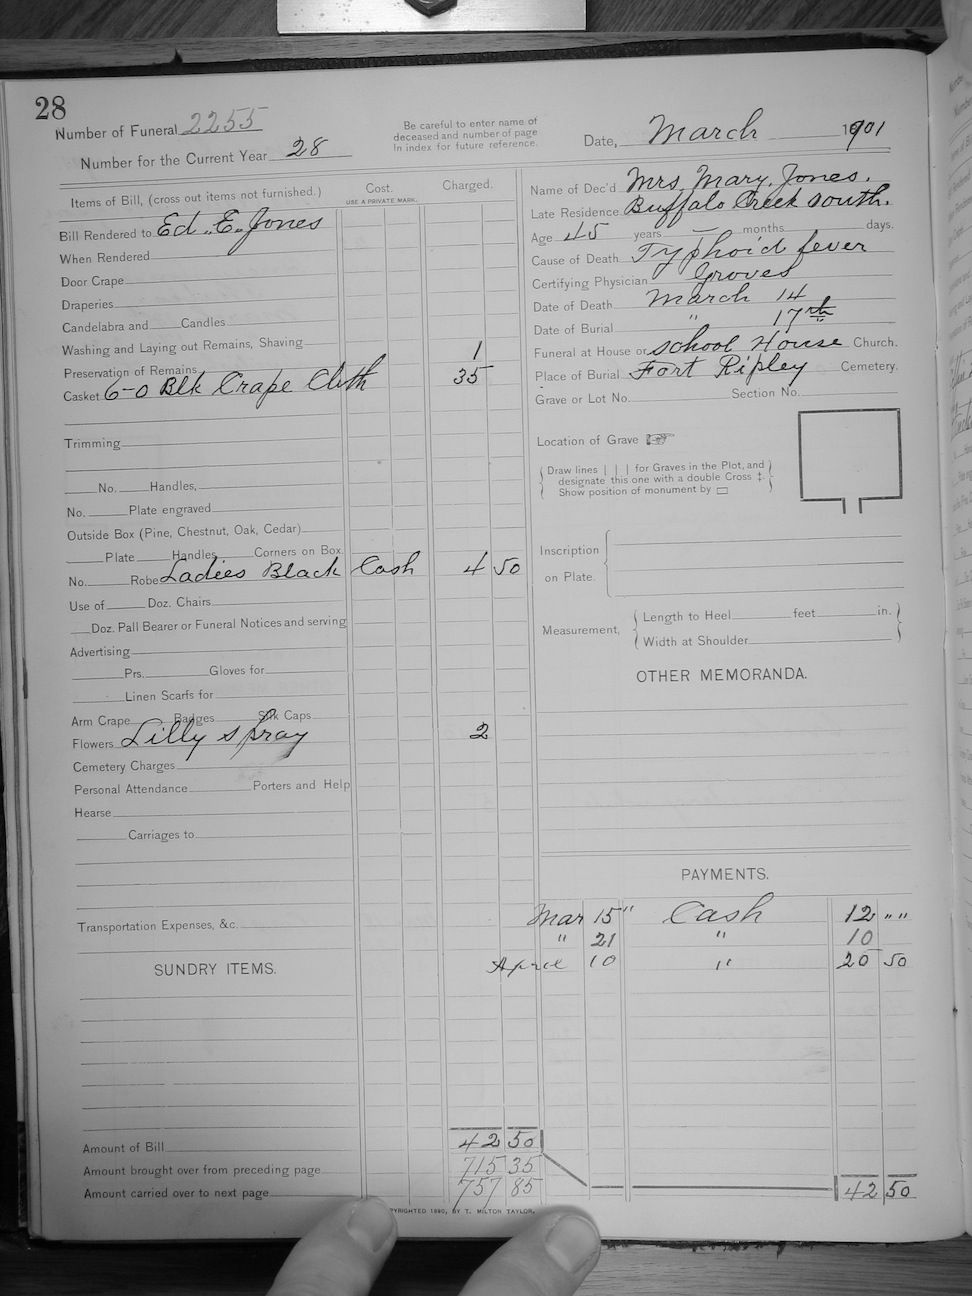 28
Number of Funeral 2255
Number for the Current Year 28
Be careful to enter name of
deceased and number of page
in index for future reference.
Date, March 1901
Items of Bill, (cross out items not furnished.) Cost. Charged.
USE A PRIVATE MARK.
Bill Rendered to Ed. E. Jones
When Rendered
Door Crape
Draperies
Candelabra and Candles
Washing and Laying out Remains, Shaving
Preservation of Remains 1
Casket 6-0 Blk Crape Cloth 35
Trimming
No. Handles,
No. Plate engraved
Outside Box (Pine, Chestnut, Oak, Cedar)
Plate Handles Corners on Box
No. Robe Ladies Black Cash 4 50
Use of Doz. Chairs
Doz. Pall Bearer or Funeral Notices and serving
Advertising
Prs. Gloves for
Linen Scarfs for
Arm Crape Badges Silk Caps
Flowers Lilly spray 2
Cemetery Charges
Personal Attendance Porters and Help
Hearse
Carriages to
Transportation Expenses, &c.
SUNDRY ITEMS.
Amount of Bill 42 50
Amount brought over from preceding page 715 35
Amount carried over to next page 757 85
Name of Dec'd Mrs. Mary. Jones.
Late Residence Buffalo Creek south.
Age 45 years — months days.
Cause of Death Typhoid fever
Certifying Physician Groves
Date of Death March 14
Date of Burial " 17th
Funeral at House or school House Church.
Place of Burial Fort Ripley Cemetery.
Grave or Lot No. Section No.
Location of Grave
Draw lines | | | for Graves in the Plot, and
designate this one with a double Cross ‡.
Show position of monument by ▭
Inscription
on Plate.
Measurement,
Length to Heel feet in.
Width at Shoulder
OTHER MEMORANDA.
PAYMENTS.
Mar 15" Cash 12 " "
" 21 " 10
April 10 " 20 50
42 50
COPYRIGHTED 1890, BY T. MILTON TAYLOR.